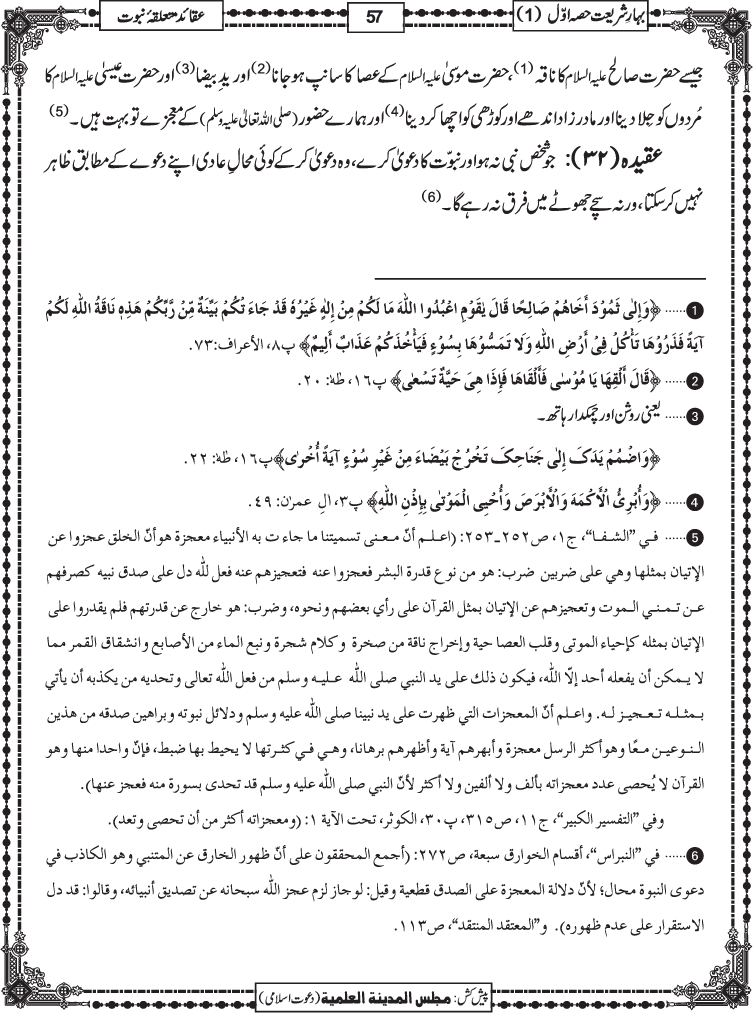 بہارِ شریعت حصہ اوّل (1)
57
عقائد متعلقۂ نبوت
جیسے حضرت صالح علیہ السلام کا ناقہ (1)، حضرت موسیٰ علیہ السلام کے عصا کا سانپ ہو جانا (2) اور یدِ بیضا (3) اور حضرت عیسیٰ علیہ السلام کا
مُردوں کو جِلا دینا اور مادر زاد اندھے اور کوڑھی کو اچھا کر دینا (4) اور ہمارے حضور (صلی اللہ تعالیٰ علیہ وسلم) کے معجزے تو بہت ہیں۔ (5)
عقیدہ (۳۲): جو شخص نبی نہ ہو اور نبوّت کا دعویٰ کرے، وہ دعویٰ کر کے کوئی محالِ عادی اپنے دعوے کے مطابق ظاہر
نہیں کر سکتا، ورنہ سچے جھوٹے میں فرق نہ رہے گا۔ (6)
1...... ﴿وَإِلٰى ثَمُوْدَ أَخَاهُمْ صَالِحًا قَالَ يٰقَوْمِ اعْبُدُوا اللّٰهَ مَا لَكُمْ مِنْ إِلٰهٍ غَيْرُهٗ قَدْ جَاءَ تْكُمْ بَيِّنَةٌ مِّنْ رَّبِّكُمْ هٰذِهٖ نَاقَةُ اللّٰهِ لَكُمْ
آيَةً فَذَرُوْهَا تَأْكُلْ فِيْ أَرْضِ اللّٰهِ وَلَا تَمَسُّوْهَا بِسُوْءٍ فَيَأْخُذَكُمْ عَذَابٌ أَلِيْمٌ﴾ پ۸، الأعراف:۷۳.
2...... ﴿قَالَ أَلْقِهَا يَا مُوْسٰى فَأَلْقَاهَا فَإِذَا هِىَ حَيَّةٌ تَسْعٰى﴾ پ۱۶، طٰهٰ: ۲۰.
3...... یعنی روشن اور چمکدار ہاتھ۔
﴿وَاضْمُمْ يَدَكَ إِلٰى جَنَاحِكَ تَخْرُجْ بَيْضَاءَ مِنْ غَيْرِ سُوْءٍ آيَةً أُخْرٰى﴾ پ۱۶، طٰهٰ: ۲۲.
4...... ﴿وَأُبْرِئُ الْأَكْمَهَ وَالْأَبْرَصَ وَأُحْيِى الْمَوْتٰى بِإِذْنِ اللّٰهِ﴾ پ۳، اٰلِ عمرٰن: ۴۹.
5...... في ”الشفا“، ج۱، ص۲۵۲ـ۲۵۳: (اعلم أنّ معنى تسميتنا ما جاء ت به الأنبياء معجزة هو أنّ الخلق عجزوا عن
الإتيان بمثلها وهي على ضربين ضرب: هو من نوع قدرة البشر فعجزوا عنه فتعجيزهم عنه فعل للّٰه دل على صدق نبيه كصرفهم
عن تمني الموت وتعجيزهم عن الإتيان بمثل القرآن على رأي بعضهم ونحوه، وضرب: هو خارج عن قدرتهم فلم يقدروا على
الإتيان بمثله كإحياء الموتى وقلب العصا حية وإخراج ناقة من صخرة وكلام شجرة ونبع الماء من الأصابع وانشقاق القمر مما
لا يمكن أن يفعله أحد إلّا اللّٰه، فيكون ذلك على يد النبي صلى اللّٰه عليه وسلم من فعل اللّٰه تعالى وتحديه من يكذبه أن يأتي
بمثله تعجيز له. واعلم أنّ المعجزات التي ظهرت على يد نبينا صلى اللّٰه عليه وسلم ودلائل نبوته وبراهين صدقه من هذين
النوعين معًا وهو أكثر الرسل معجزة وأبهرهم آية وأظهرهم برهانا، وهي في كثرتها لا يحيط بها ضبط، فإنّ واحدا منها وهو
القرآن لا يُحصى عدد معجزاته بألف ولا ألفين ولا أكثر لأنّ النبي صلى اللّٰه عليه وسلم قد تحدى بسورة منه فعجز عنها).
وفي ”التفسير الكبير“، ج۱۱، ص۳۱۵، پ۳۰، الكوثر، تحت الآية ۱: (ومعجزاته أكثر من أن تحصى وتعد).
6...... في ”النبراس“، أقسام الخوارق سبعة، ص۲۷۲: (أجمع المحققون على أنّ ظهور الخارق عن المتنبي وهو الكاذب في
دعوى النبوة محال؛ لأنّ دلالة المعجزة على الصدق قطعية وقيل: لوجاز لزم عجز اللّٰه سبحانه عن تصديق أنبيائه، وقالوا: قد دل
الاستقرار على عدم ظهوره). و”المعتقد المنتقد“، ص۱۱۳.
پیش کش: مجلس المدينة العلمية (دعوت اسلامی)